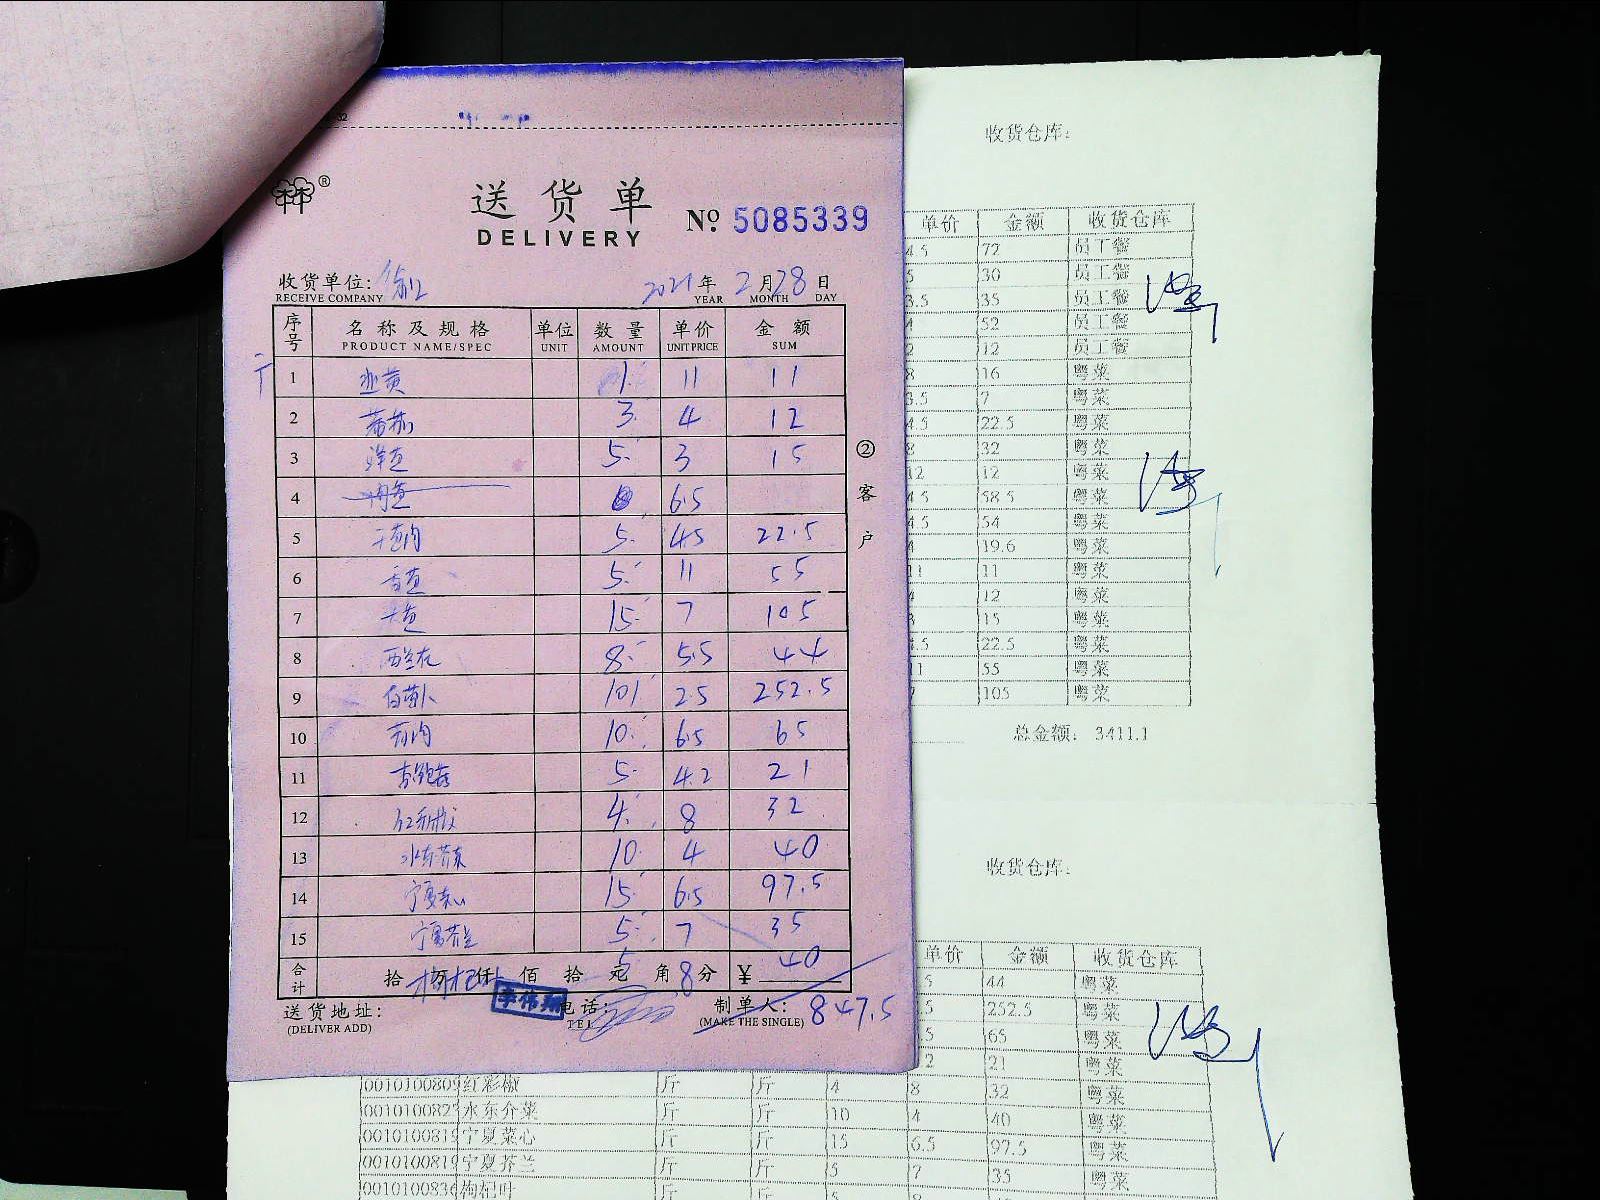 送货单
DELIVERY
№ 5085339
收货单位:
RECEIVE COMPANY
2021年 2月28日
YEAR MONTH DAY
序号 名称及规格 单位 数量 单价 金额
PRODUCT NAME/SPEC UNIT AMOUNT UNIT PRICE SUM
1 韭黄 1 11 11
2 3 4 12
3 5 3 15
4 6.5
5 5 4.5 22.5
6 5 11 55
7 15 7 105
8 西兰花 8 5.5 44
9 白萝卜 101 2.5 252.5
10 10 6.5 65
11 杏鲍菇 5 4.2 21
12 红彩椒 4 8 32
13 水东芥菜 10 4 40
14 宁夏菜心 15 6.5 97.5
15 宁夏芥兰 5 7 35
枸杞叶 5 8 40
合计 拾 万 仟 佰 拾 元 角 分 ¥
送货地址: 电话: 制单人: 847.5
(DELIVER ADD) TEL (MAKE THE SINGLE)
李伟翔
②客户
收货仓库:
单价 金额 收货仓库
4.5 72 员工餐
5 30 员工餐
3.5 35 员工餐
4 52 员工餐
2 12 员工餐
8 16 粤菜
3.5 7 粤菜
4.5 22.5 粤菜
8 32 粤菜
12 12 粤菜
4.5 58.5 粤菜
4.5 54 粤菜
4 19.6 粤菜
11 11 粤菜
4 12 粤菜
3 15 粤菜
4.5 22.5 粤菜
11 55 粤菜
7 105 粤菜
总金额: 3411.1
收货仓库:
单价 金额 收货仓库
5 44 粤菜
.5 252.5 粤菜
.5 65 粤菜
.2 21 粤菜
红彩椒 斤 斤 4 8 32 粤菜
水东介菜 斤 斤 10 4 40 粤菜
宁夏菜心 斤 斤 15 6.5 97.5 粤菜
宁夏芥兰 斤 斤 5 7 35 粤菜
枸杞叶